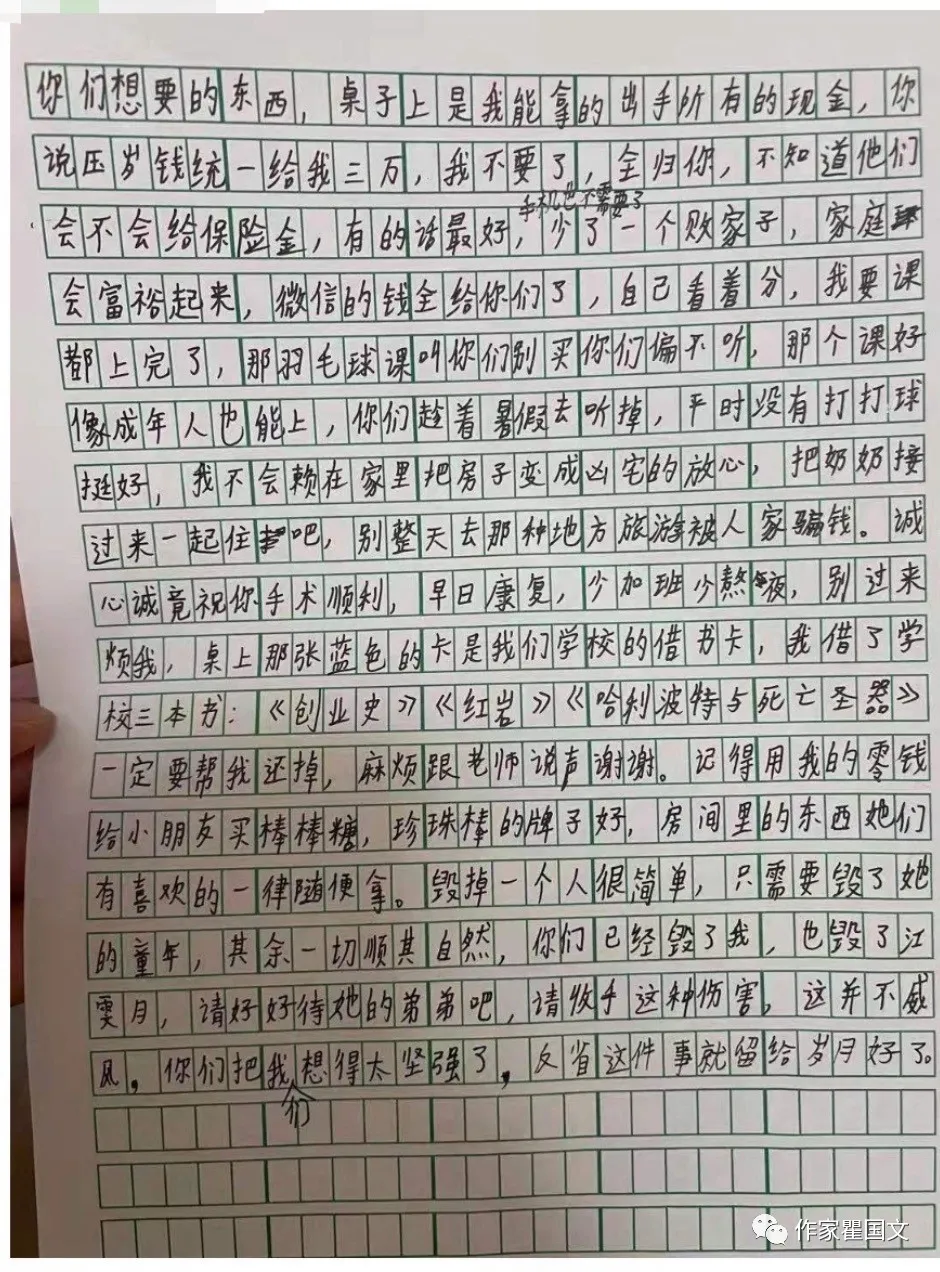 你们想要的东西，桌子上是我能拿的出手所有的现金，你
说压岁钱统一给我三万，我不要了，全归你，不知道他们
手机也不需要了
会不会给保险金，有的话最好，少了一个败家子，家庭
会富裕起来，微信的钱全给你们了，自己看着分，我要课
都上完了，那羽毛球课叫你们别买你们偏不听，那个课好
像成年人也能上，你们趁着暑假去听掉，平时没有打打球
挺好，我不会赖在家里把房子变成凶宅的放心，把奶奶接
过来一起住吧，别整天去那种地方旅游被人家骗钱。诚
心诚竟祝你手术顺利，早日康复，少加班少熬夜，别过来
烦我，桌上那张蓝色的卡是我们学校的借书卡，我借了学
校三本书：《创业史》《红岩》《哈利波特与死亡圣器》
一定要帮我还掉，麻烦跟老师说声谢谢。记得用我的零钱
给小朋友买棒棒糖，珍珠棒的牌子好，房间里的东西她们
有喜欢的一律随便拿。毁掉一个人很简单，只需要毁了她
的童年，其余一切顺其自然，你们已经毁了我，也毁了江
雯月，请好好待她的弟弟吧，请收手这种伤害，这并不威
风，你们把我们想得太坚强了，反省这件事就留给岁月好了。
作家瞿国文